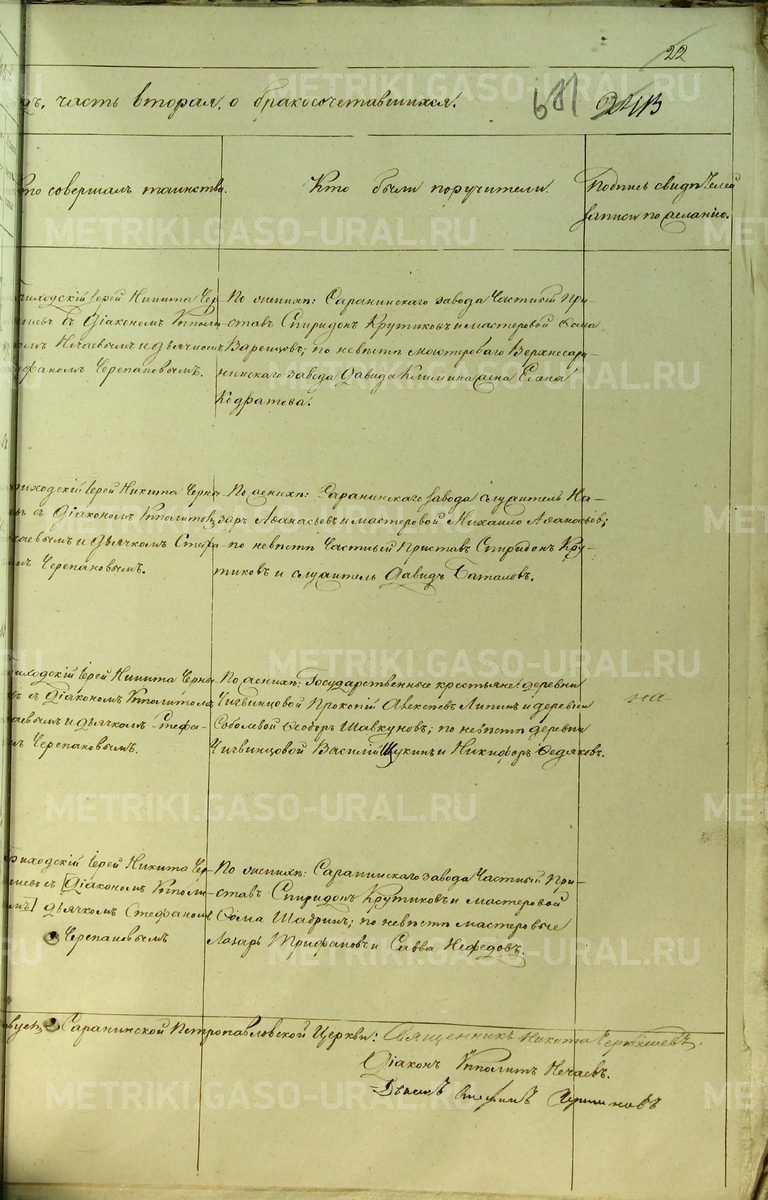 22
дъ, часть вторая, о бракосочетавшихся.
681 2413
то совершалъ таинство.
Кто были поручители.
Подпись свидѣтелей
записи по желанію.
риходскій Іерей Никита Чер
съ Діакономъ Ипполи
омъ Нечаевымъ и дьячкомъ
ефаномъ Черепановымъ.
По женихѣ: Саранинскаго завода Частный При-
ставъ Спиридонъ Крутиковъ и мастеровой Ѳома
по невѣстѣ мастероваго Верхнесара-
нинскаго завода Давида жена Елена
Кодратова.
риходскій Іерей Никита Черна
въ съ Діакономъ Ипполитомъ
чаевымъ и дьячкомъ Стефа
мъ Черепановымъ.
По женихѣ: Саранинскаго завода служитель На-
заръ Аѳанасьевъ и мастеровой Михайло Аѳанасьевъ;
по невѣстѣ Частный Приставъ Спиридонъ Кру-
тиковъ и служитель Давидъ Баталовъ.
риходскій Іерей Никита Черны
въ съ Діакономъ Ипполитомъ
чаевымъ и дьячкомъ Стефа-
мъ Черепановымъ.
По женихѣ: Государственные крестьяне: деревни
Чигвинцовой Прокопій Алексѣевъ Липинъ и деревни
Соболевой Ѳедоръ Шавкуновъ; по невѣстѣ деревни
Чигвинцовой Василій Щукинъ и Никифоръ Седяковъ.
на
риходскій Іерей Никита Чер
шевъ съ [Діакономъ Ипполи
мъ] дьячкомъ Стефаномъ
Черепановымъ
По женихѣ: Саранинскаго завода Частный При-
ставъ Спиридонъ Крутиковъ и мастеровой
Ѳома Шавринъ; по невѣстѣ мастеровые
Лазарь Трифановъ и Савва Нефедовъ.
Саранинской Петропавловской Церкви: Священникъ Никита
Діаконъ Ипполитъ Нечаевъ.
Дьячекъ Стефанъ Черепановъ
METRIKI.GASO-URAL.RU